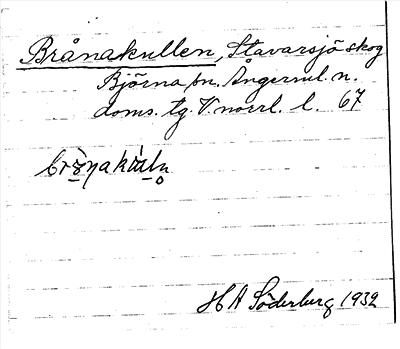 Brånakullen, Stavarsjö skog
Björna sn. Ångerml. n.
doms. tg. V. norrl. l. 67
H A Söderberg 1932